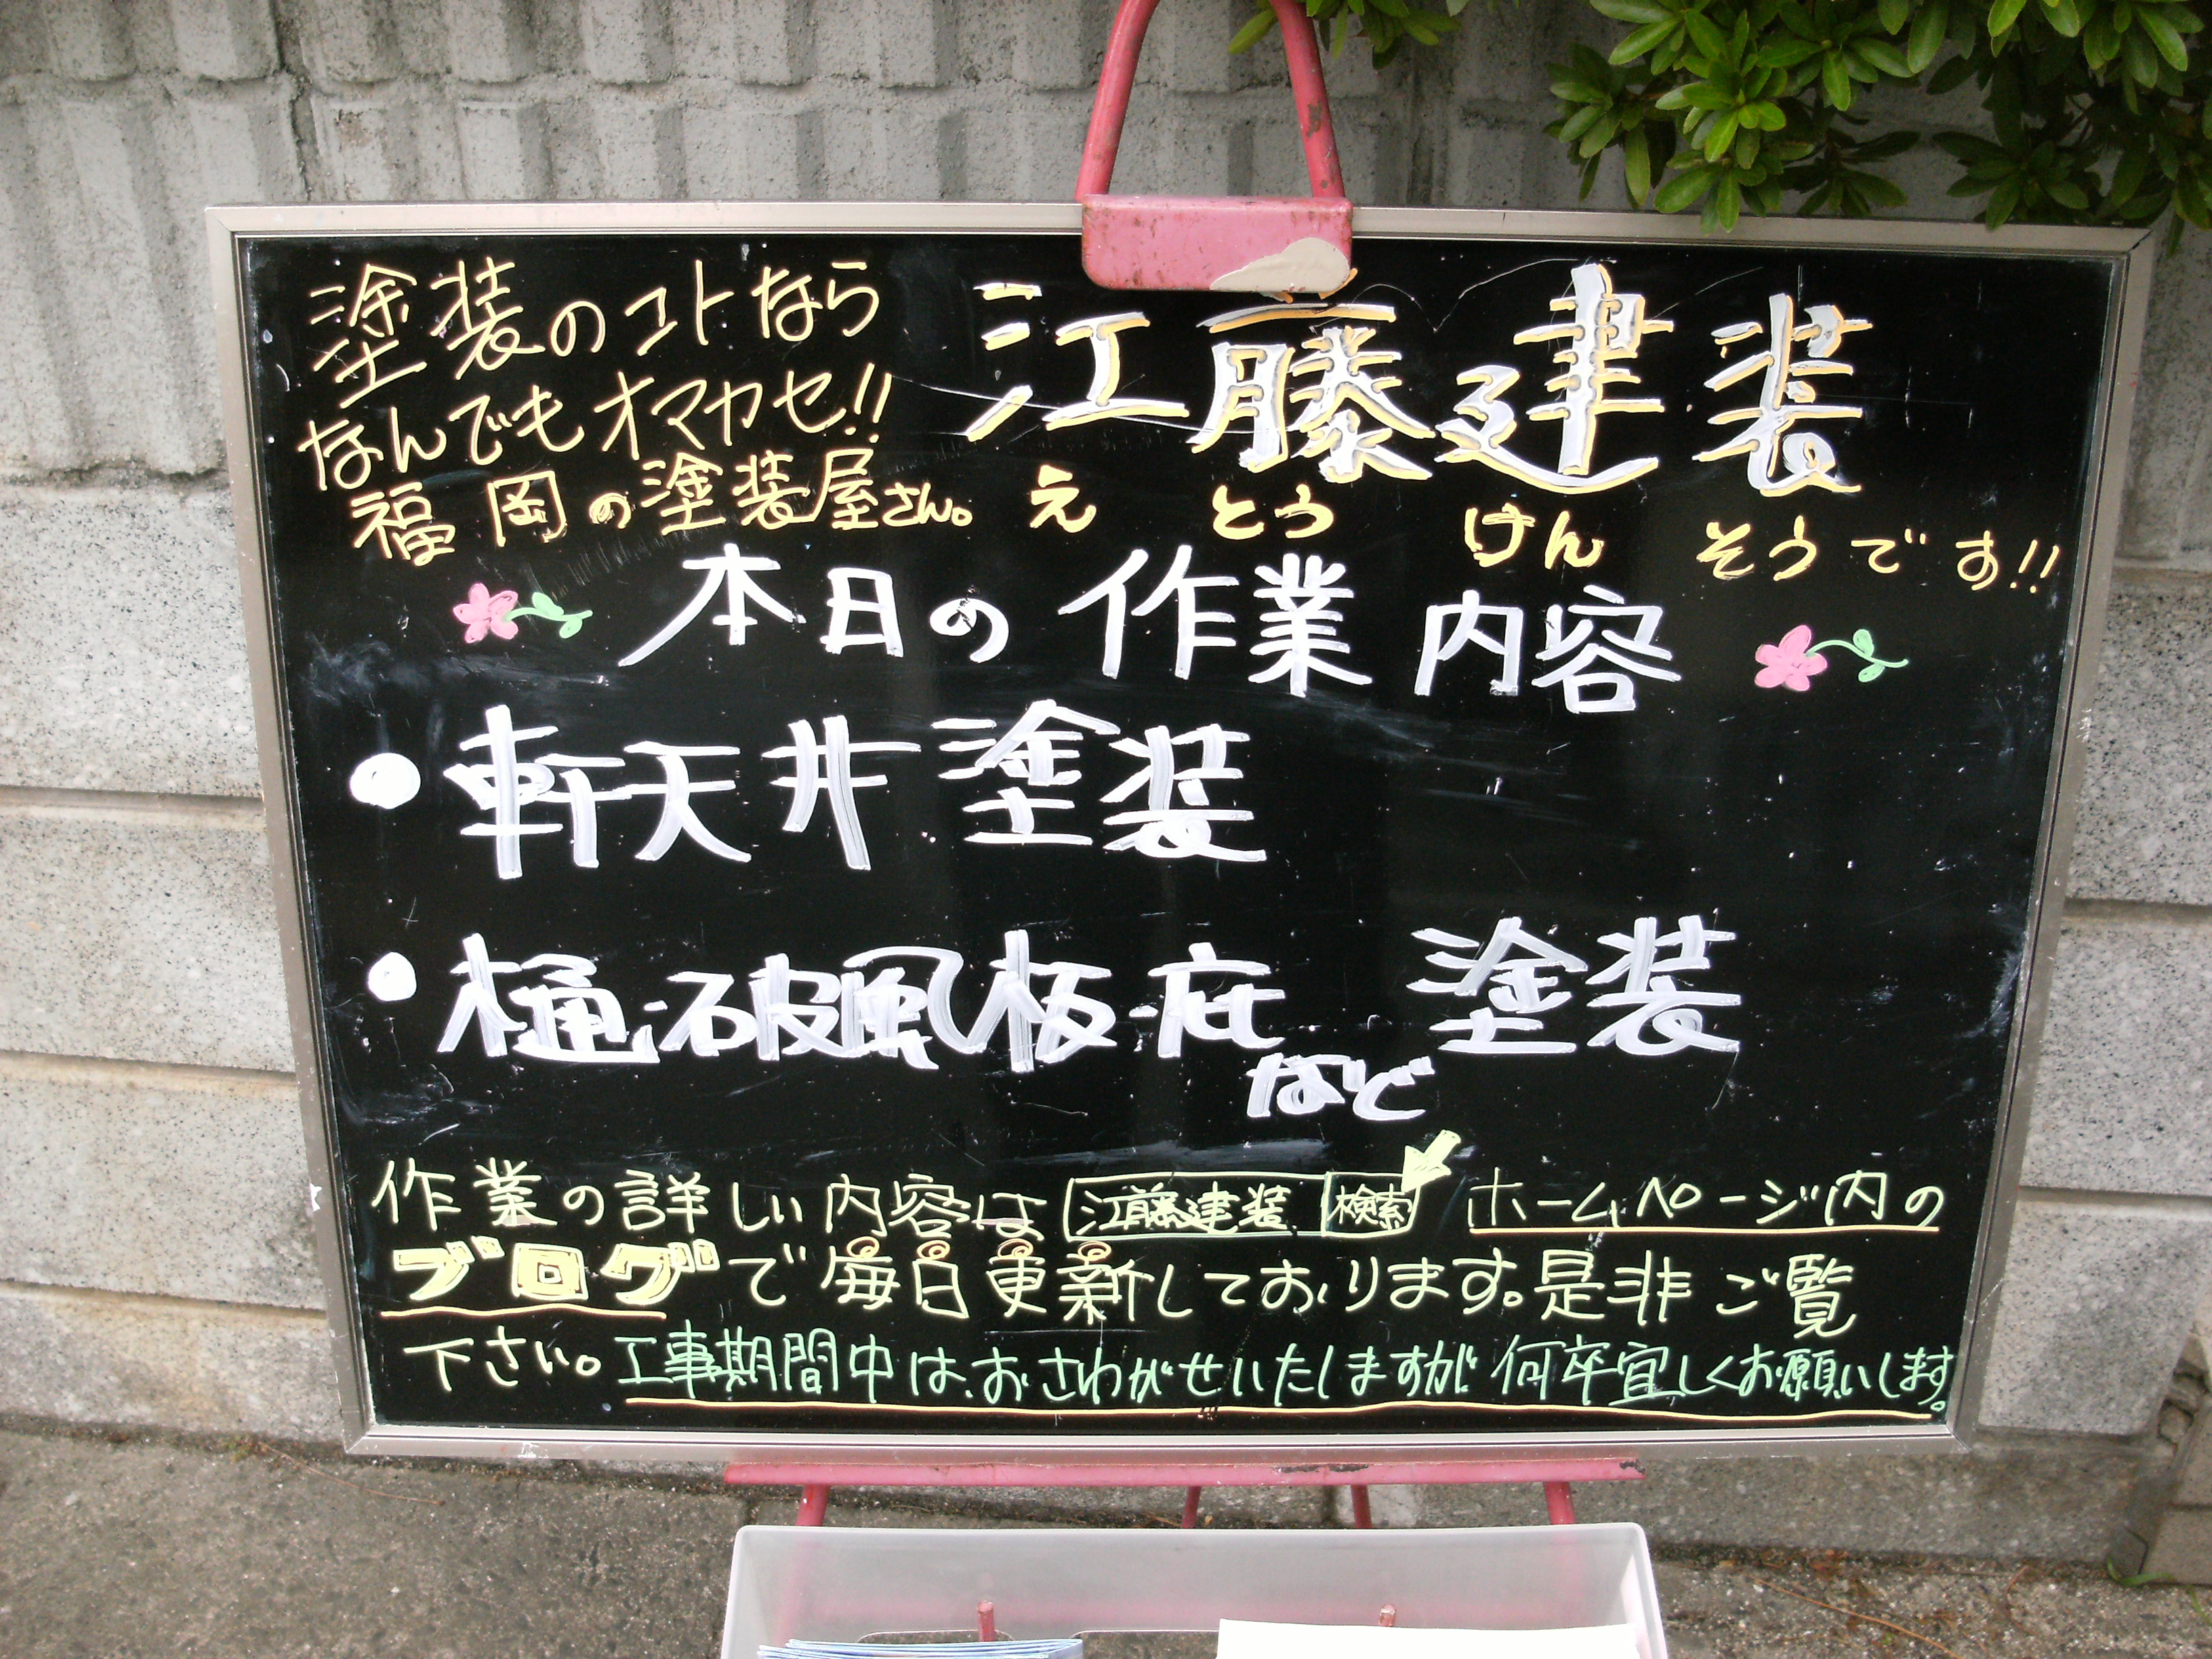 塗装のコトなら
なんでもオマカセ!!
福岡の塗装屋さん。
江藤建装
えとうけんそうです!!
本日の作業内容
●軒天井塗装
●樋・破風板・庇など 塗装
作業の詳しい内容は 江藤建装 検索 ホームページ内の
ブログで毎日更新しております。是非ご覧
下さい。工事期間中は、おさわがせいたしますが何卒宜しくお願いします。